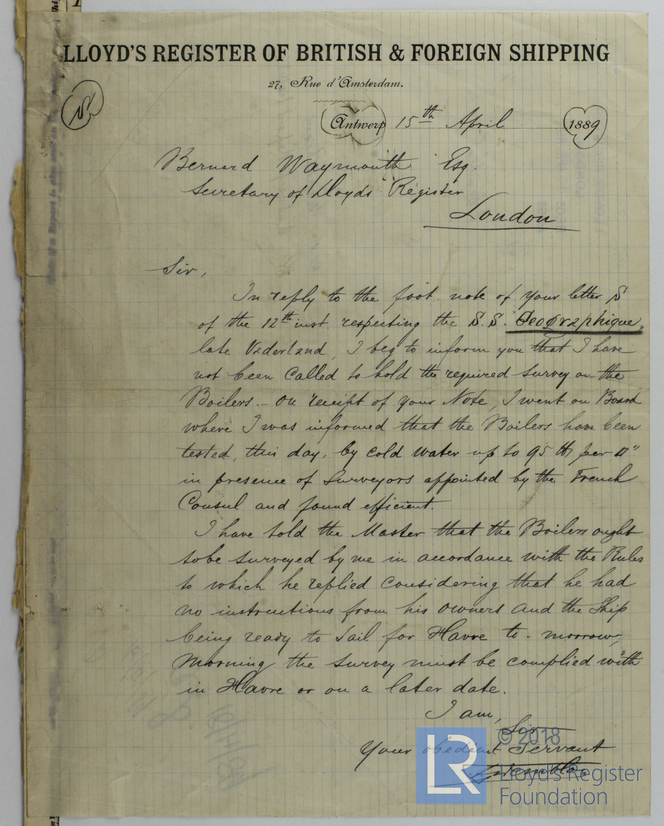 LLOYD'S REGISTER OF BRITISH & FOREIGN SHIPPING
27, Rue d'Amsterdam.
Antwerp 15th April 1889
Bernard Waymouth Esq.
Secretary of Lloyds Register
London
Sir,
In reply to the foot note of your letter S
of the 12th inst. respecting the S.S. "Geographique"
late Vaderland, I beg to inform you that I have
not been called to hold the required survey on the
Boilers. - On receipt of your Note, I went on Board
where I was informed that the Boilers have been
tested, this day, by cold water up to 95 lb per □"
in presence of Surveyors appointed by the French
Consul and found efficient.
I have told the Master that the Boilers ought
to be surveyed by me in accordance with the Rules
to which he replied considering that he had
no instructions from his owners and the Ship
being ready to sail for Havre to-morrow,
morning the survey must be complied with
in Havre or on a later date.
I am, Sir
Your obedient Servant
© 2018
LR
Lloyd's Register
Foundation